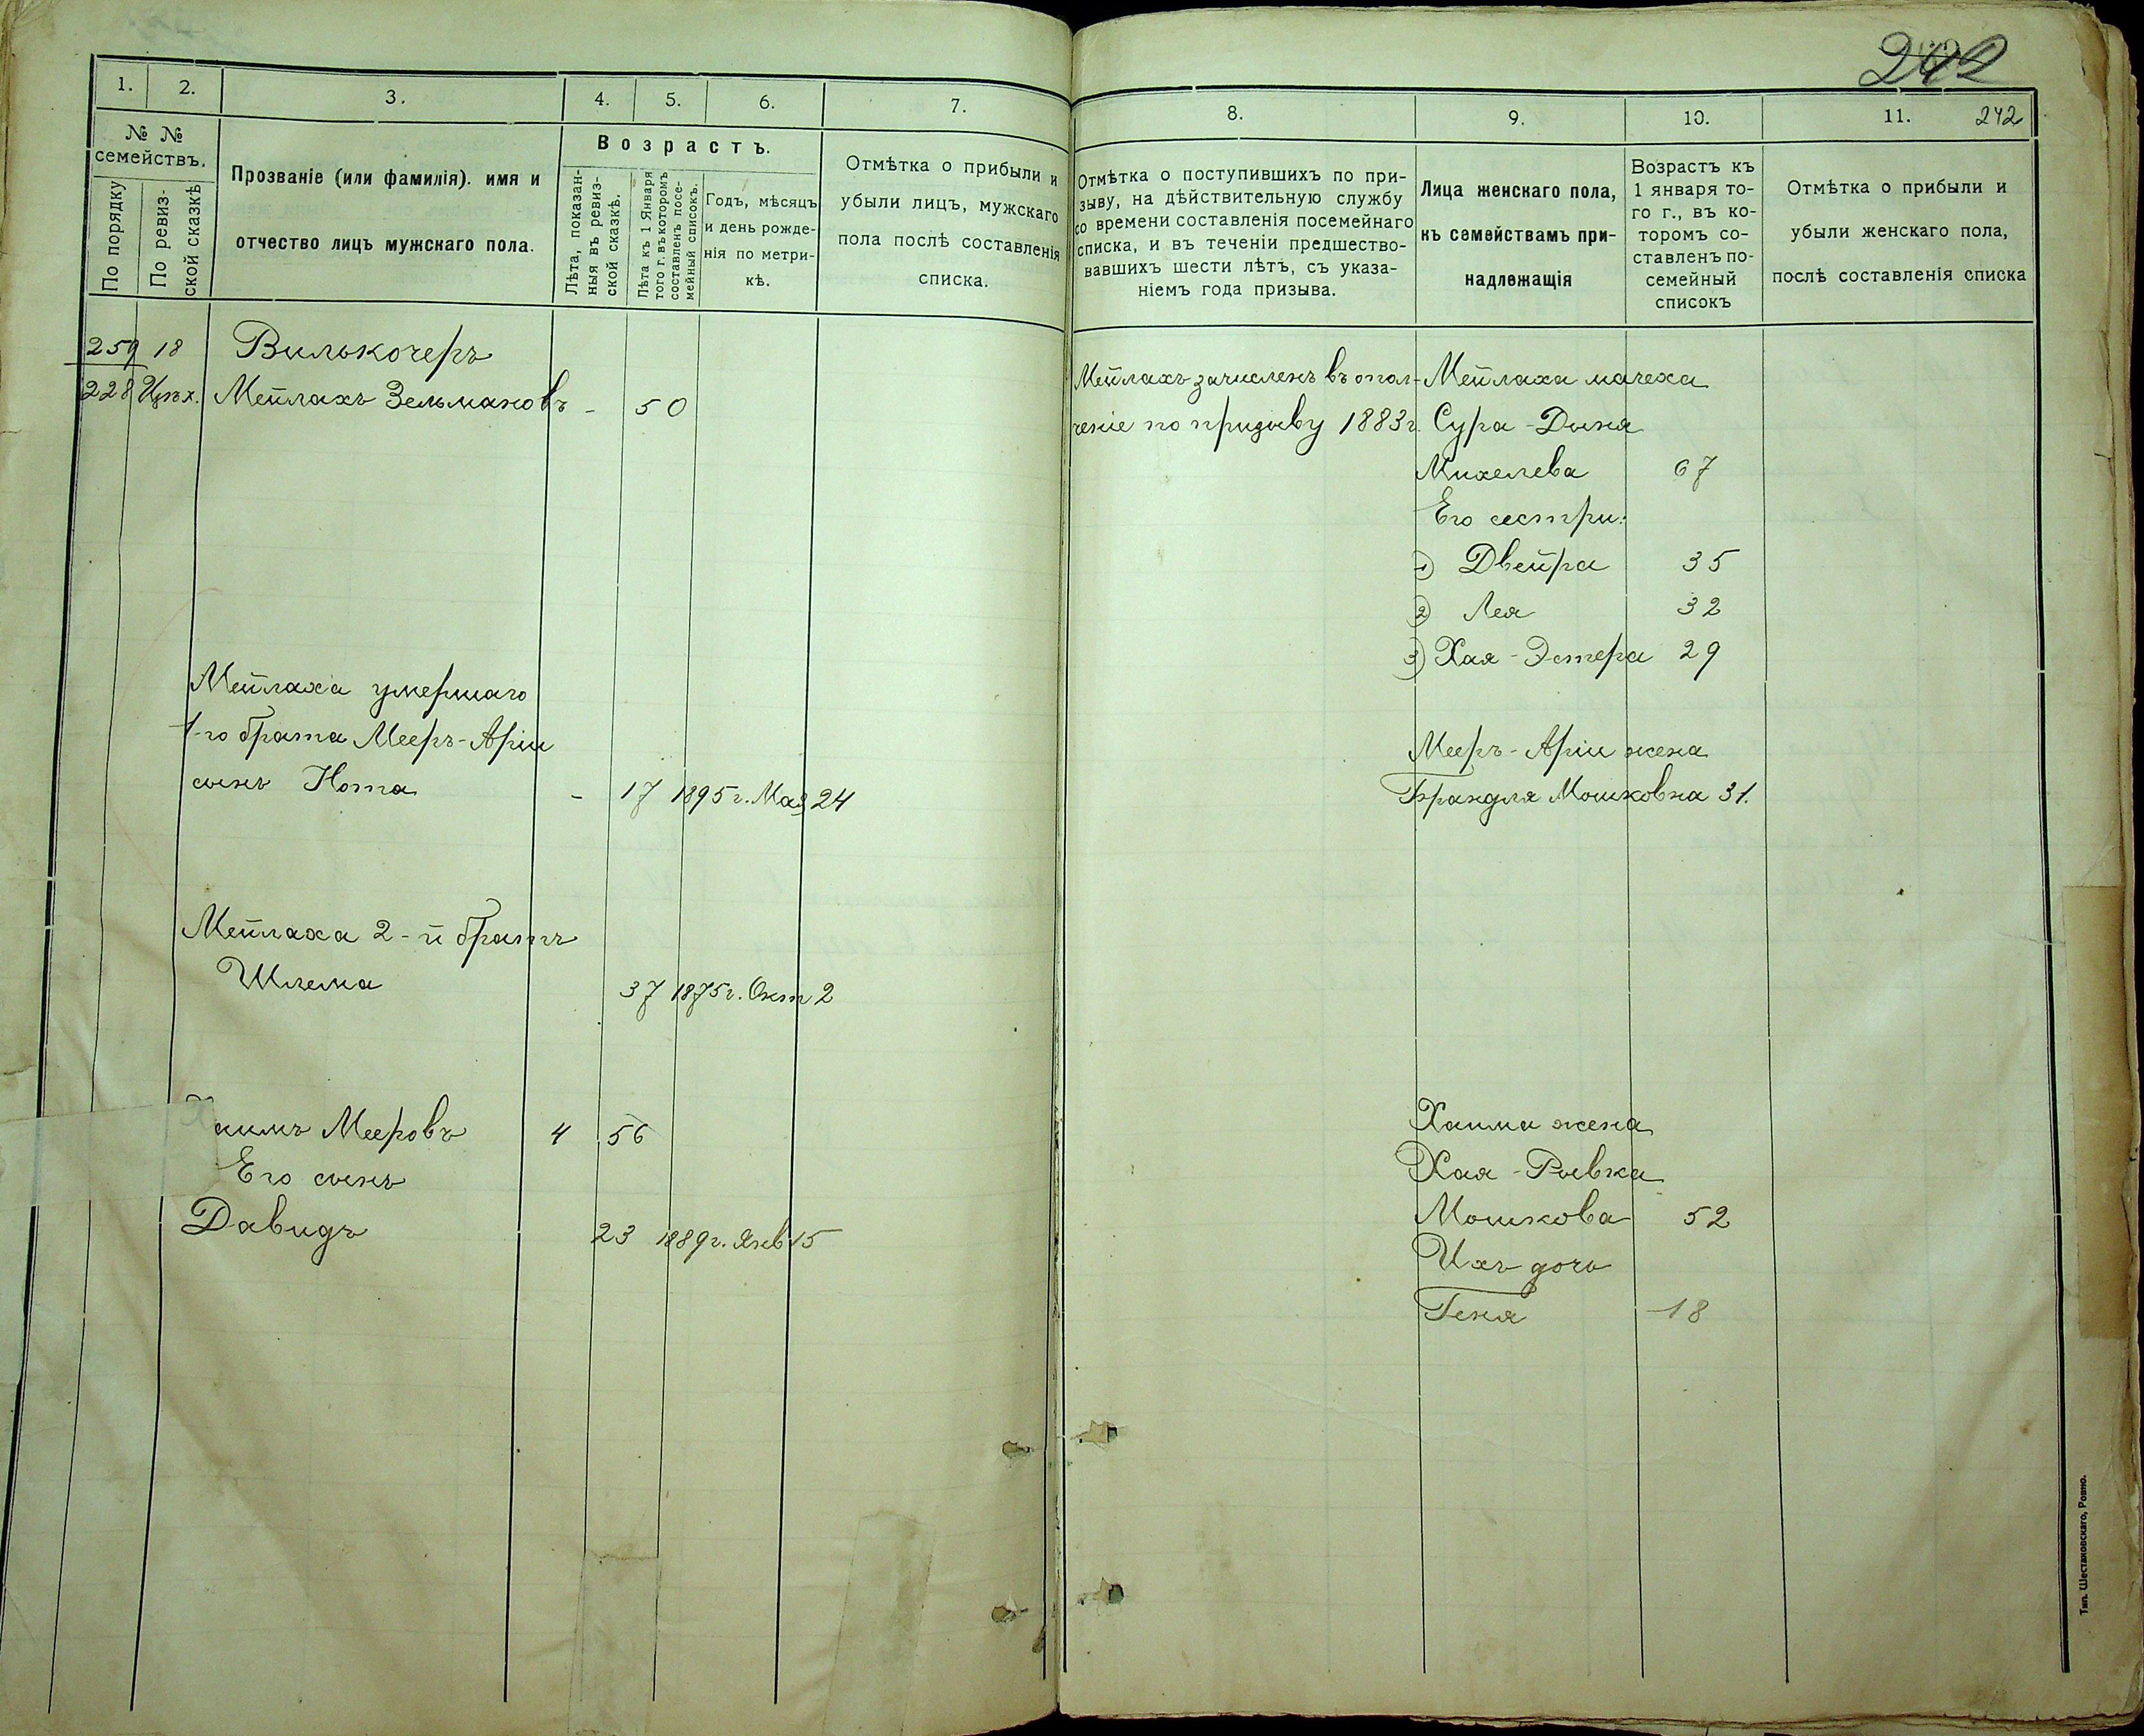 242
1. 2. 3. 4. 5. 6. 7.
№ № семействъ.
По порядку
По ревиз-
ской сказкѣ
Прозваніе (или фамилія). имя и
отчество лицъ мужскаго пола.
Возрастъ.
Лѣта, показан-
ныя въ ревиз-
ской сказкѣ.
Лѣта къ 1 Января
того г. въ которомъ
составленъ посе-
мейный списокъ.
Годъ, мѣсяцъ
и день рожде-
нія по метри-
кѣ.
Отмѣтка о прибыли и
убыли лицъ, мужскаго
пола послѣ составленія
списка.
259 18 Вилькочеръ
228 Мейлахъ Зельмановъ - 50
Мейлаха умершаго
1-го брата Мееръ-Аріи
сынъ Нота - 17 1895 г. Мая 24
Мейлаха 2-й братъ
Шлема 37 1875 г. Окт 2
Хаимъ Мееровъ 4 56
Его сынъ
Давидъ 23 1889 г. Янв 15
8. 9. 10. 11. 242
Отмѣтка о поступившихъ по при-
зыву, на дѣйствительную службу
со времени составленія посемейнаго
списка, и въ теченіи предшество-
вавшихъ шести лѣтъ, съ указа-
ніемъ года призыва.
Лица женскаго пола,
къ семействамъ при-
надлежащія
Возрастъ къ
1 января то-
го г., въ ко-
торомъ со-
ставленъ по-
семейный
списокъ
Отмѣтка о прибыли и
убыли женскаго пола,
послѣ составленія списка
Мейлахъ зачисленъ въ опол- Мейлаха мачеха
ченіе по призыву 1883 г. Сура-Дыня
Михелева 67
Его сестри:
1) Двейра 35
2) Лея 32
3) Хая-Эстера 29
Мееръ-Аріи жена
Брандля Мошковна 31.
Хаима жена
Хая-Рывка
Мошкова 52
Ихъ дочь
Геня 18
Тип. Шестаковскаго, Ровно.